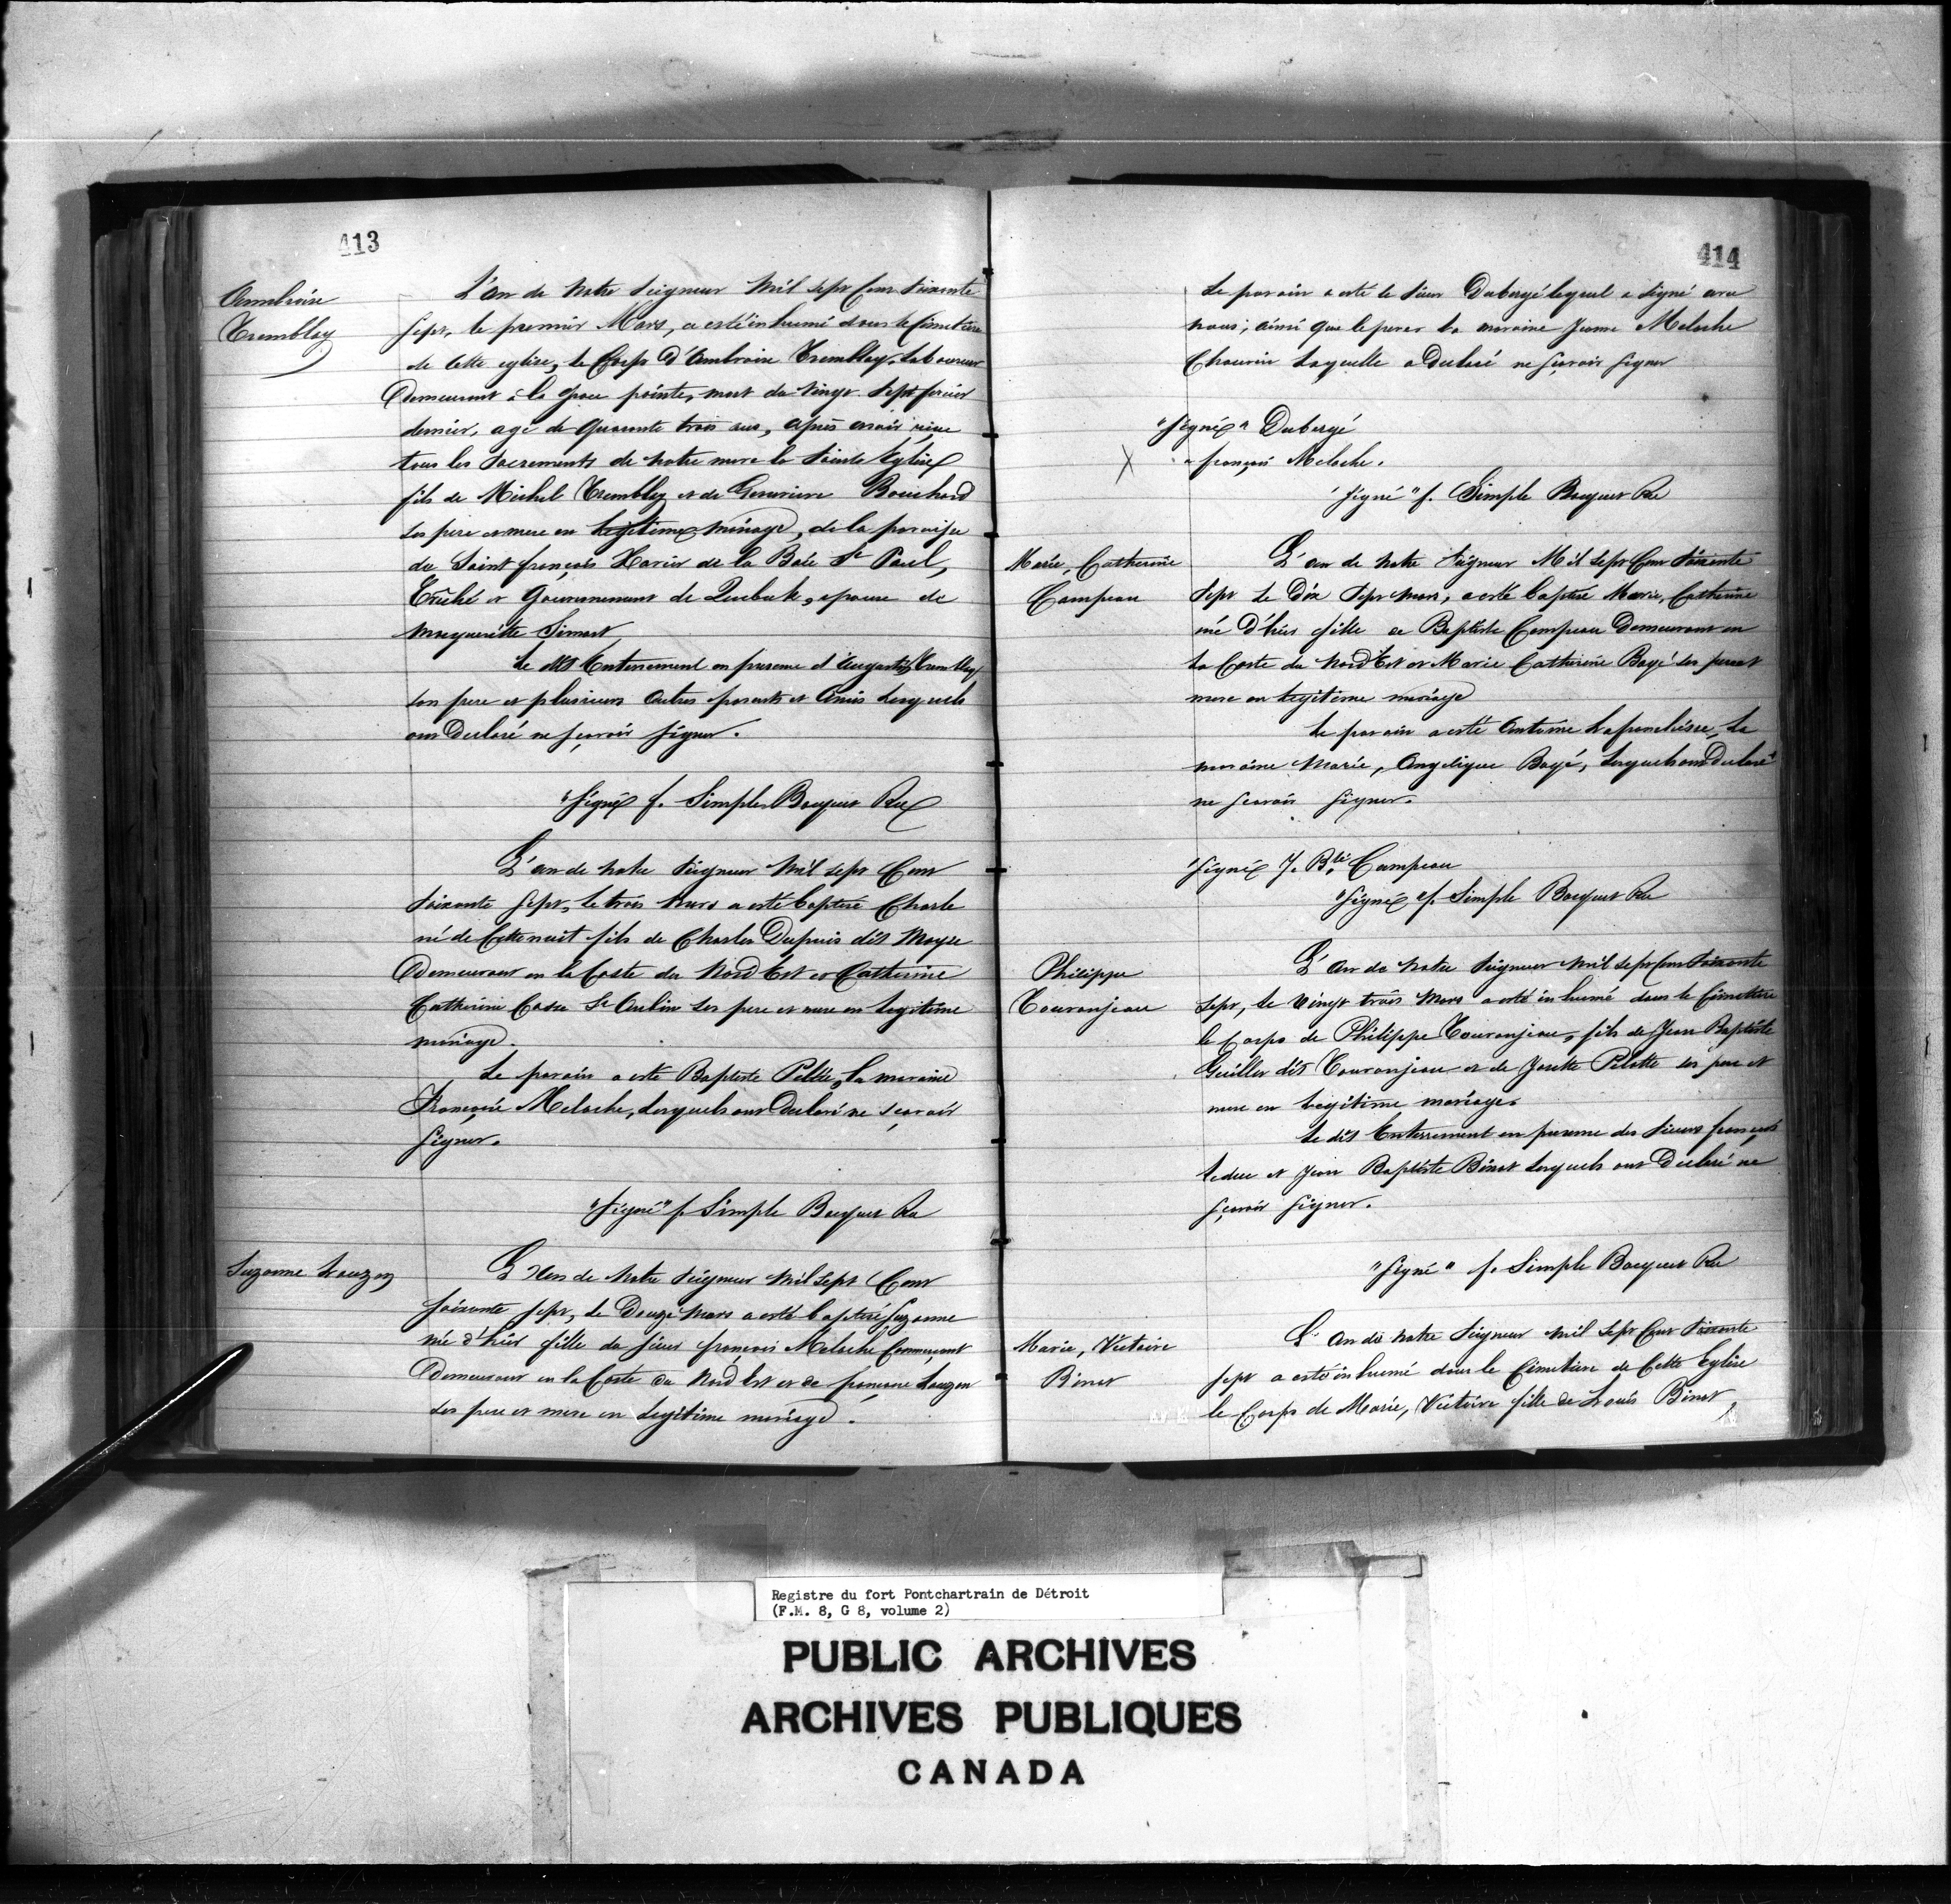 413
Ambroise
Tremblay
L'an de Notre Seigneur Mil sept Cent Soixante
Sept, le premier Mars, a esté inhumé dans le Cimetière
de Cette eglise, le Corps d'Ambroise Tremblay, Laboureur
Demeurant à la grose pointe, mort du vingt Sept fevrier
dernier, agé de quarante trois ans, après avoir reçue
tous les Sacrements de notre mere la Sainte Eglise
fils de Michel Tremblay et de Genevieve Bouchard
ses pere et mere en legitime mariage, de la paroisse
du Saint françois Xavier de la Baie St Paul,
Evêché et Gouvernement de Quebek, epoux de
Marguerite Simart
Le dit Enterrement en presence d'Augustin Tremblay
son frere et plusieurs autres parents et Amis lesquels
ont Declaré ne sçavoir signer.
"Signé" f. Simple Bocquet Rec
L'an de notre Seigneur Mil sept Cent
Soixante Sept, le trois Mars a esté baptisé Charle
né de Cette nuit fils de Charles Dupuis dit Moyse
Demeurant en la Coste du Nord Est et Catherine
Catherine Casse St Aubin ses pere et mere en legitime
mariage.
Le parain a esté Baptiste Peltié, la maraine
Françoise Meloche, lesquels ont Declaré ne sçavoir
Signer.
"Signé" f. Simple Bocquet Rec
Suzanne Lauzon
L'An de Notre Seigneur Mil sept Cent
Soixante sept, le Douze Mars a esté baptisé Suzanne
née d'hier fille du sieur françois Meloche Commerçant
Demeurant en la Coste du Nord Est et de françoise Lauzon
ses pere et mere en legitime mariage.
414
Le parain a esté le sieur Dubergé lequel a signé avec
nous, ainsi que le pere et la maraine Jeanne Meloche
Chauvin laquelle a Declaré ne sçavoir signer
"Signé" Dubergé
X
" françois Meloche.
"Signé" f. Simple Bocquet Rec
Marie, Catherine
Campeau
L'an de notre Seigneur Mil sept Cent Soixante
Sept le Dix Sept Mars, a esté baptisé Marie, Catherine
né D'hier fille de Baptiste Campeau Demeurant en
la Coste du Nord Est et Marie Catherine Bayé ses pere et
mere en legitime mariage
Le parain a esté Antoine Lafranchise, La
maraine Marie, Angelique Bayé, lesquels ont Declaré
ne sçavoir signer.
"Signé" J. Bte Campeau
"Signé" f. Simple Bocquet Rec
Philippe
Touranjeau
L'An de notre Seigneur Mil sept Cent Soixante
Sept, le vingt trois Mars a esté inhumé dans le Cimetiere
le Corps de Philippe Touranjeau, fils de Jean Baptiste
Guiller dit Touranjeau et de Josette Pilotte ses pere et
mere en legitime mariage.
Le dit Enterrement en presence des sieurs françois
Leduc et Jean Baptiste Binet lesquels ont Declaré ne
sçavoir signer.
"Signé" f. Simple Bocquet Rec
Marie, Victoire
Binet
L'An de notre Seigneur Mil Sept Cent Soixante
sept a esté inhumé dans le Cimetiere de Cette Eglise
le Corps de Marie, Victoire fille de Louis Binet
Registre du fort Pontchartrain de Détroit
(F.M. 8, G 8, volume 2)
PUBLIC ARCHIVES
ARCHIVES PUBLIQUES
CANADA